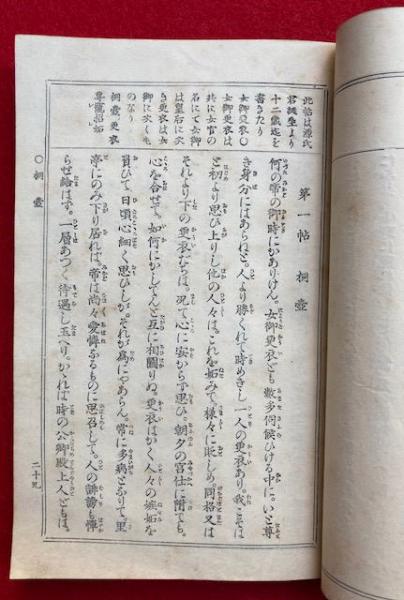 此帖は源氏
君誕生より
十二歳迄を
書きたり
女御更衣〇
女御更衣は
共に女官の
名にて女御
は皇后に次
ぎ更衣は女
御に次ぐも
のなり
桐壺更衣
尊寵招妬
第一帖 桐壺
何の帝の御時にかありけん。女御更衣ども數多伺候ひける中に。いと尊
き身分にはあらねど。人より勝くれて時めきし一人の更衣あり。我こそは
と初より思ひ上りし他の人々は。これを妬みて。様々に貶しめ。同格又は
それより下の更衣たちは。況て心に安からず思ひ。朝夕の宮仕に附ても。
心を合せて。如何にかしてんと互に相圖りぬ。更衣はかく人々の嫉妬を
負ひて日頃心細く思ひしが。それが爲にやあらん。常に多病となりて。里
亭にのみ下り居れば。帝は尚々愛憐なるものに思召して。人の誹謗も憚
らせ給はず。一層あつく待遇し玉へり。かゝれば時の公卿殿上人どもは。
〇桐壺
二十九